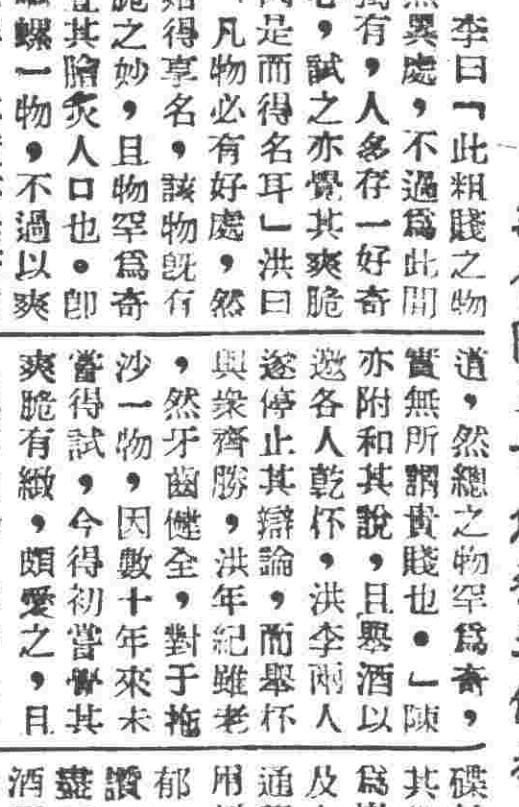 李曰「此粗賤之物
異處，不過爲此間
有，人多存一好奇
，試之亦覺其爽脆
是而得名耳」洪曰
凡物必有好處，然
得享名，該物旣有
脆之妙，且物罕爲奇
其膾炙人口也。卽
螺一物，不過以爽
道，然總之物罕爲奇，
實無所謂貴賤也。」陳
亦附和其說，且舉酒以
邀各人乾杯，洪李兩人
遂停止其辯論，而舉杯
與衆齊勝，洪年紀雖老
，然牙齒健全，對于拖
沙一物，因數十年來未
嘗得試，今得初嘗覺其
爽脆有緻，頗愛之，且
碟
其
爲
及
通
用
郁
讚
盡
酒